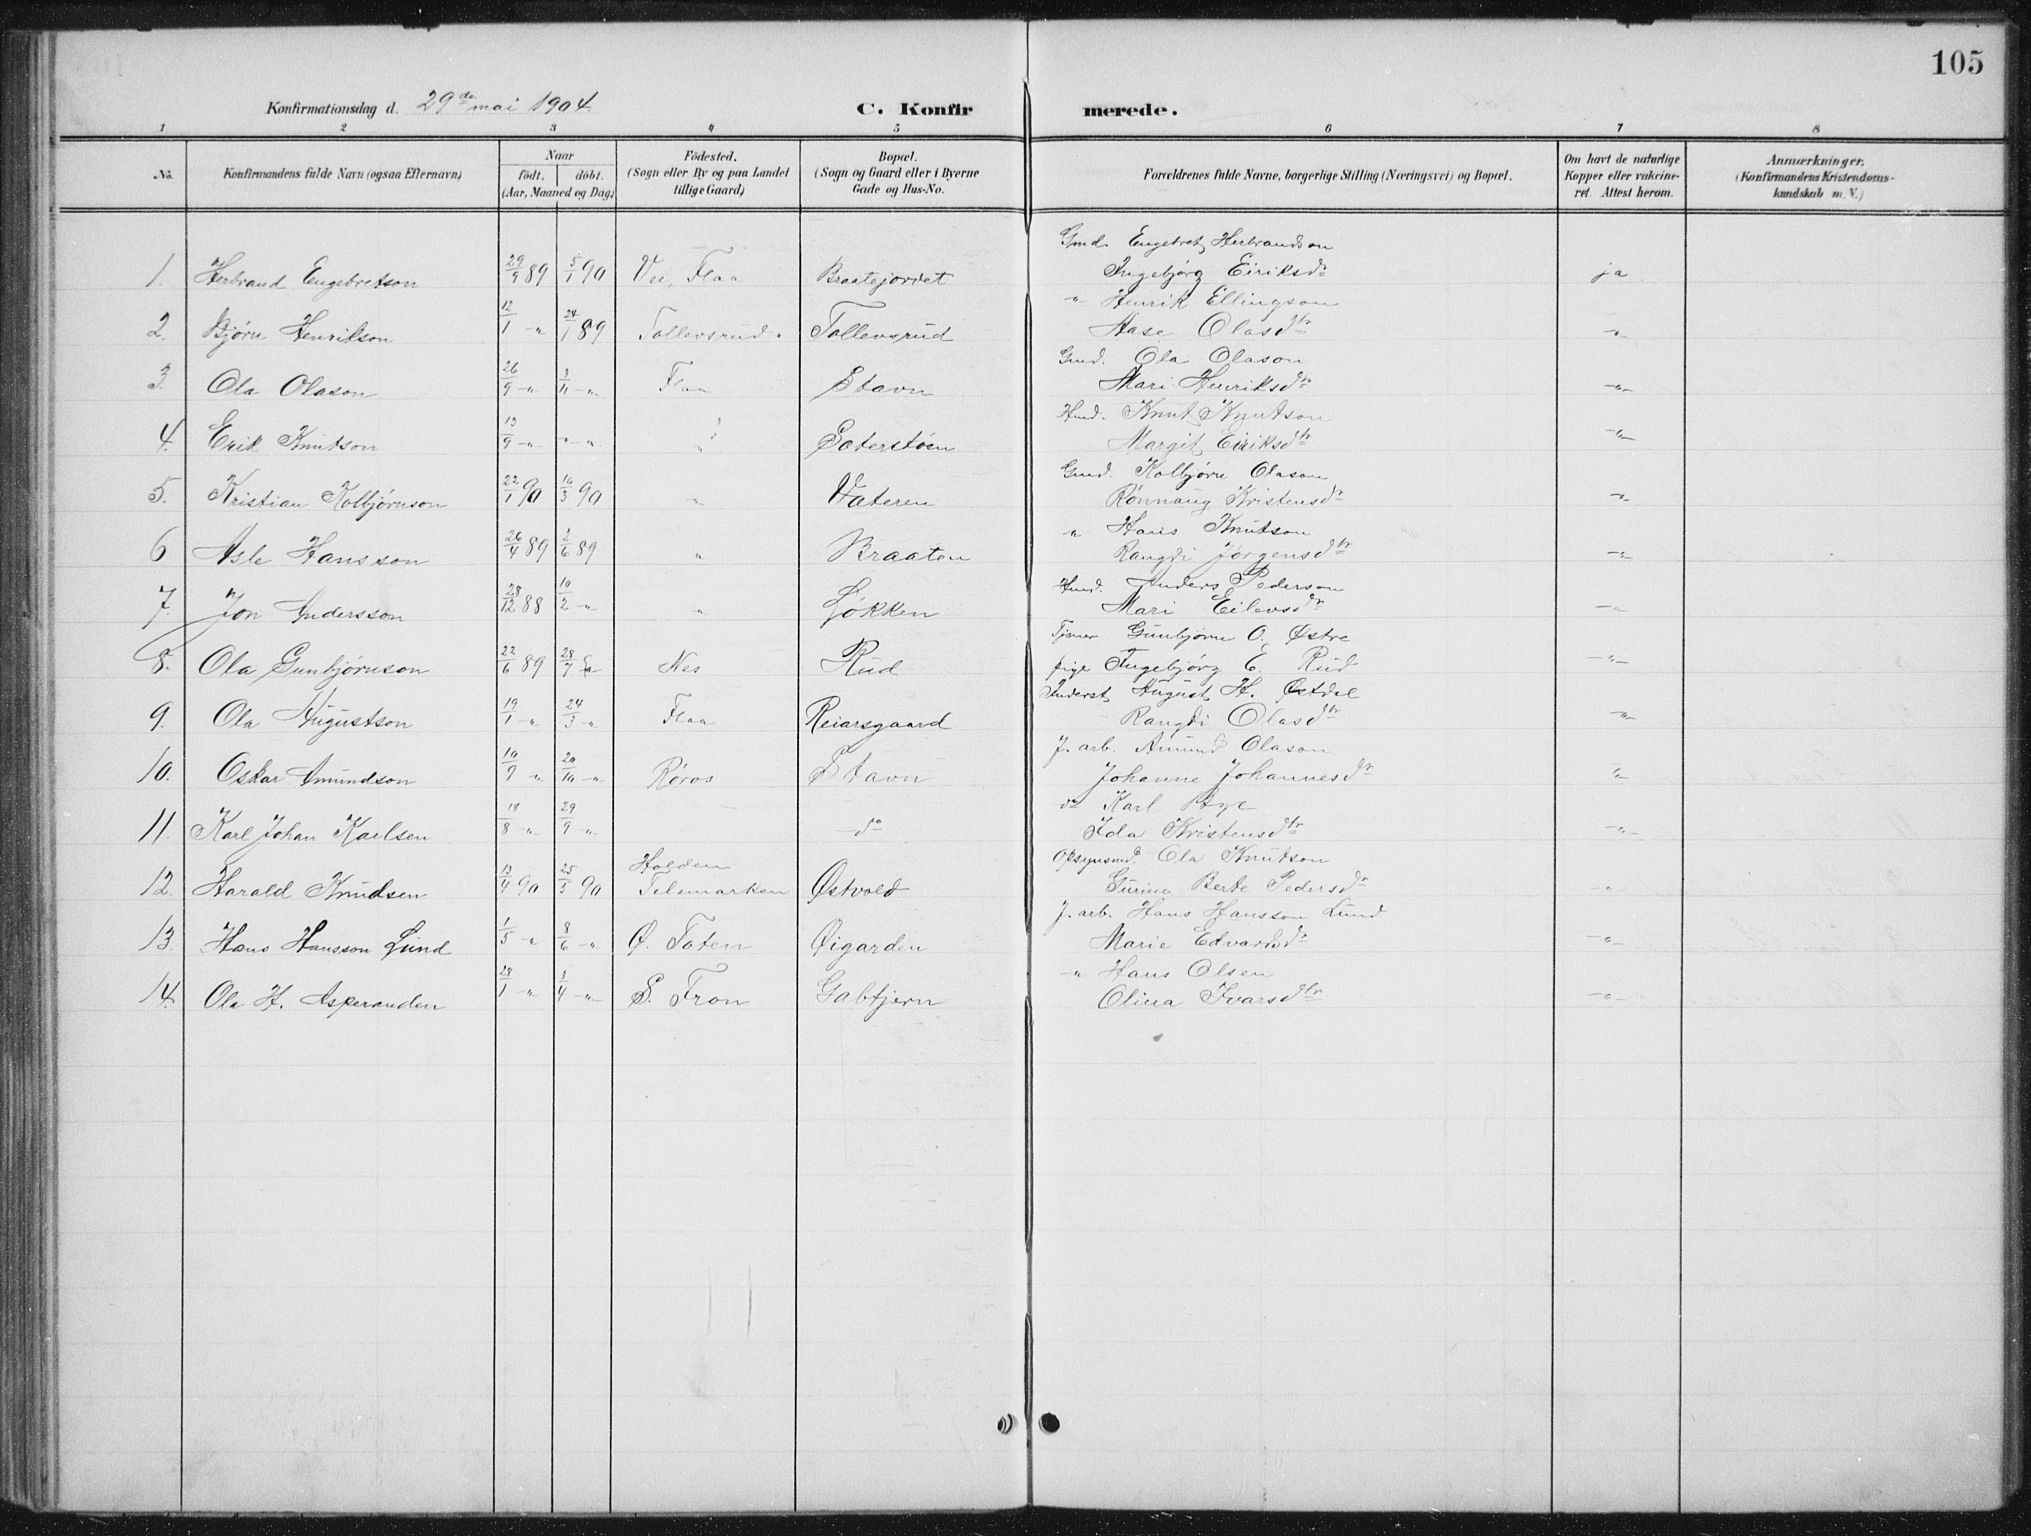 105
Konfirmationsdag d. 29de mai 1904.
C. Konfirmerede.
1 2 3 4 5 6 7 8
No.
Konfirmandens fulde Navn (ogsaa Efternavn)
Naar
født. døbt.
(Aar, Maaned og Dag)
Fødested.
(Sogn eller By og paa Landet
tillige Gaard)
Bopæl.
(Sogn og Gaard eller i Byerne
Gade og Hus-No.
Forældrenes fulde Navne, borgerlige Stilling (Næringsvei) og Bopæl.
Om havt de naturlige
Kopper eller vakcine-
ret. Attest herom.
Anmærkninger.
(Konfirmandens Kristendoms-
kundskab m. V.)
Gmd. Engebret Herbrandson
1. Herbrand Engebretson 29/9 89 5/1 90 Vee, Flaa Braatejordet Ingebjørg Eiriksdr ja
" Henrik Ellingson
2. Bjørn Henrikson 12/1 " 24/1 89 Tollevsrud. Tollevsrud Aase Olasdtr "
Gmd. Ola Olason
3. Ola Olason 26/9 " 3/11 " Flaa Stavn Mari Henriksdtr "
Hmd. Knut Knutson
4. Erik Knutson 13/9 " " " " Sæterstøen Margit Eiriksdtr "
Gmd. Kolbjørn Olason
5. Kristian Kolbjørnson 22/1 90 10/3 90 " Vateren Rønnaug Kristensdr "
" Hans Knutson
6 Asle Hansson 26/4 89 2/6 89 " Braaten Rangdi Jørgensdtr "
Hmd. Anders Pederson
7. Jon Andersson 28/12 88 10/2 " " Løkken Mari Eilevsdtr "
Tjener Gunbjørn O. Østre
8. Ola Gunbjørnson 22/6 89 28/7 Nes Rud pige Ingebjørg E. Rud "
Inderst August H. Østdal
9. Ola Augustson 19/1 " 24/3 " Flaa Reiarsgaard Rangdi Olasdtr "
J. arb. Amund Olason
10. Oskar Amundson 10/9 " 20/10 " Røros Stavn Johanne Johannesdr "
do Karl Bye
11. Karl Johan Karlsen 18/8 " 29/9 " do Ida Kristensdtr "
Opsynsmd. Ola Knutson
12. Harald Knudsen 13/4 90 25/5 90 Holden Telemarken Østvold Gurine Berte Pedersdr "
J. arb. Hans Hansson Lund
13. Hans Hansson Lund 1/5 " 8/6 " Ø. Toten Øigarden Marie Edvardsdr "
" Hans Olsen
14. Ola H. Asperanden 28/1 " 3/4 " S. Fron Gabtjern Olina Ivarsdtr "